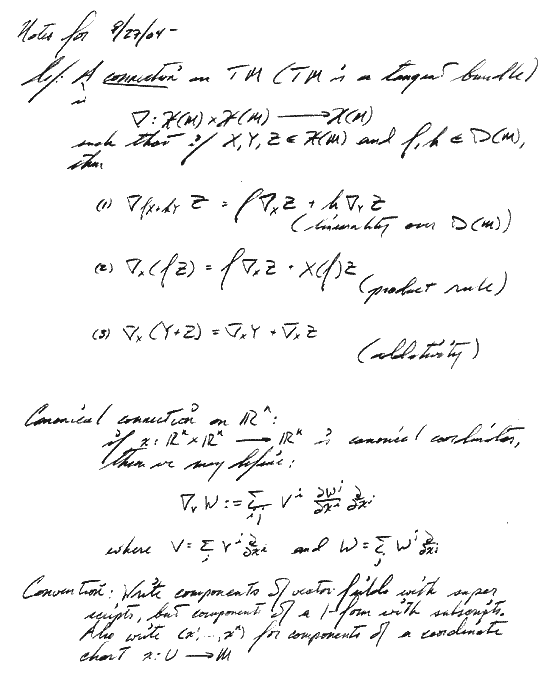 Notes for 9/27/04 -
Def: A connection on TM (TM is a tangent bundle) is
∇: 𝔛(M) × 𝔛(M) ⟶ 𝔛(M)
such that if X, Y, Z ∈ 𝔛(M) and f, h ∈ D(M),
then
(1) ∇_{fX+hY} Z = f∇_X Z + h∇_Y Z
(linearity over D(M))
(2) ∇_X (fZ) = f∇_X Z + X(f)Z
(product rule)
(3) ∇_X (Y+Z) = ∇_X Y + ∇_X Z
(additivity)
Canonical connection on ℝⁿ:
if x: ℝⁿ × ℝⁿ ⟶ ℝⁿ is canonical coordinates,
then we may define:
∇_V W := Σ_{i,j} Vⁱ ∂Wʲ/∂xⁱ ∂/∂xʲ
where V = Σ_i Vⁱ ∂/∂xⁱ and W = Σ_j Wʲ ∂/∂xʲ
Convention: Write components of vector fields with super
scripts, but component of a 1-form with subscripts.
Also write (x¹, ..., xⁿ) for components of a coordinate
chart x: U ⟶ M